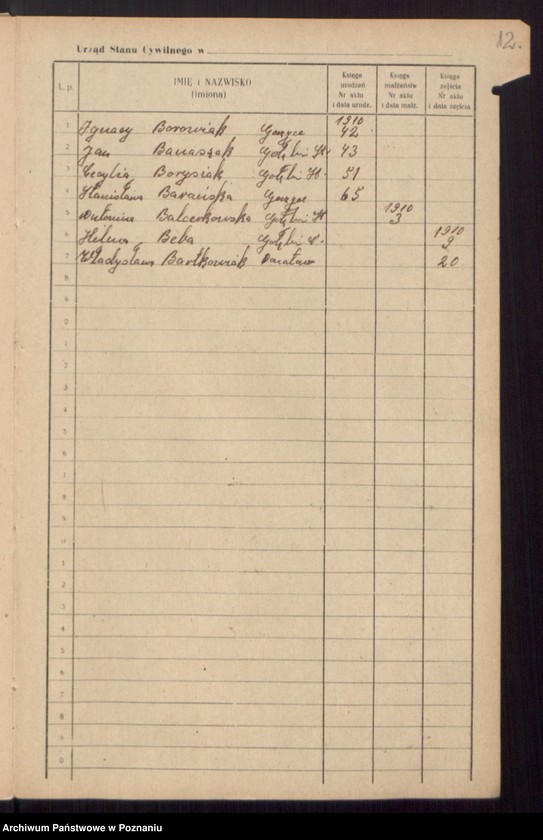 12.
Urząd Stanu Cywilnego w
L. p. IMIĘ i NAZWISKO (imiona) Księga urodzeń Nr aktu i data urodz. Księga małżeństw Nr aktu i data małż. Księga zejścia Nr aktu i data zejścia
1910
1 Ignacy Borowiak Gorzyce 42
2 Jan Banaszak Gołębin St. 43
3 Cecylia Borysiak Gołębin St. 51
4 Stanisława Barańska Gorzyce 65
1910
5 Antonina Balcerkowska Gołębin St 3
1910
6 Helena Beba Gołębin 9
7 Władysława Bartkowiak 20
8
9
0
1
2
3
4
5
6
7
8
9
0
1
2
3
4
5
6
7
8
9
0
Archiwum Państwowe w Poznaniu